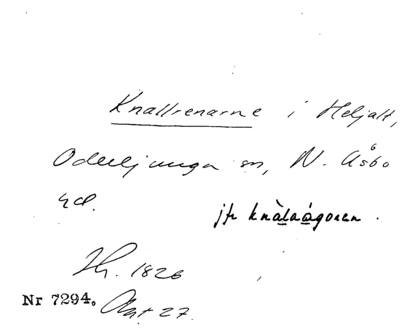 Knallrenarne i Heljalt,
Oderljunga sn, N. Åsbo
hd.
jfr knàlaågoren.
Hr. 1826
Nr 7294. Akt 27.